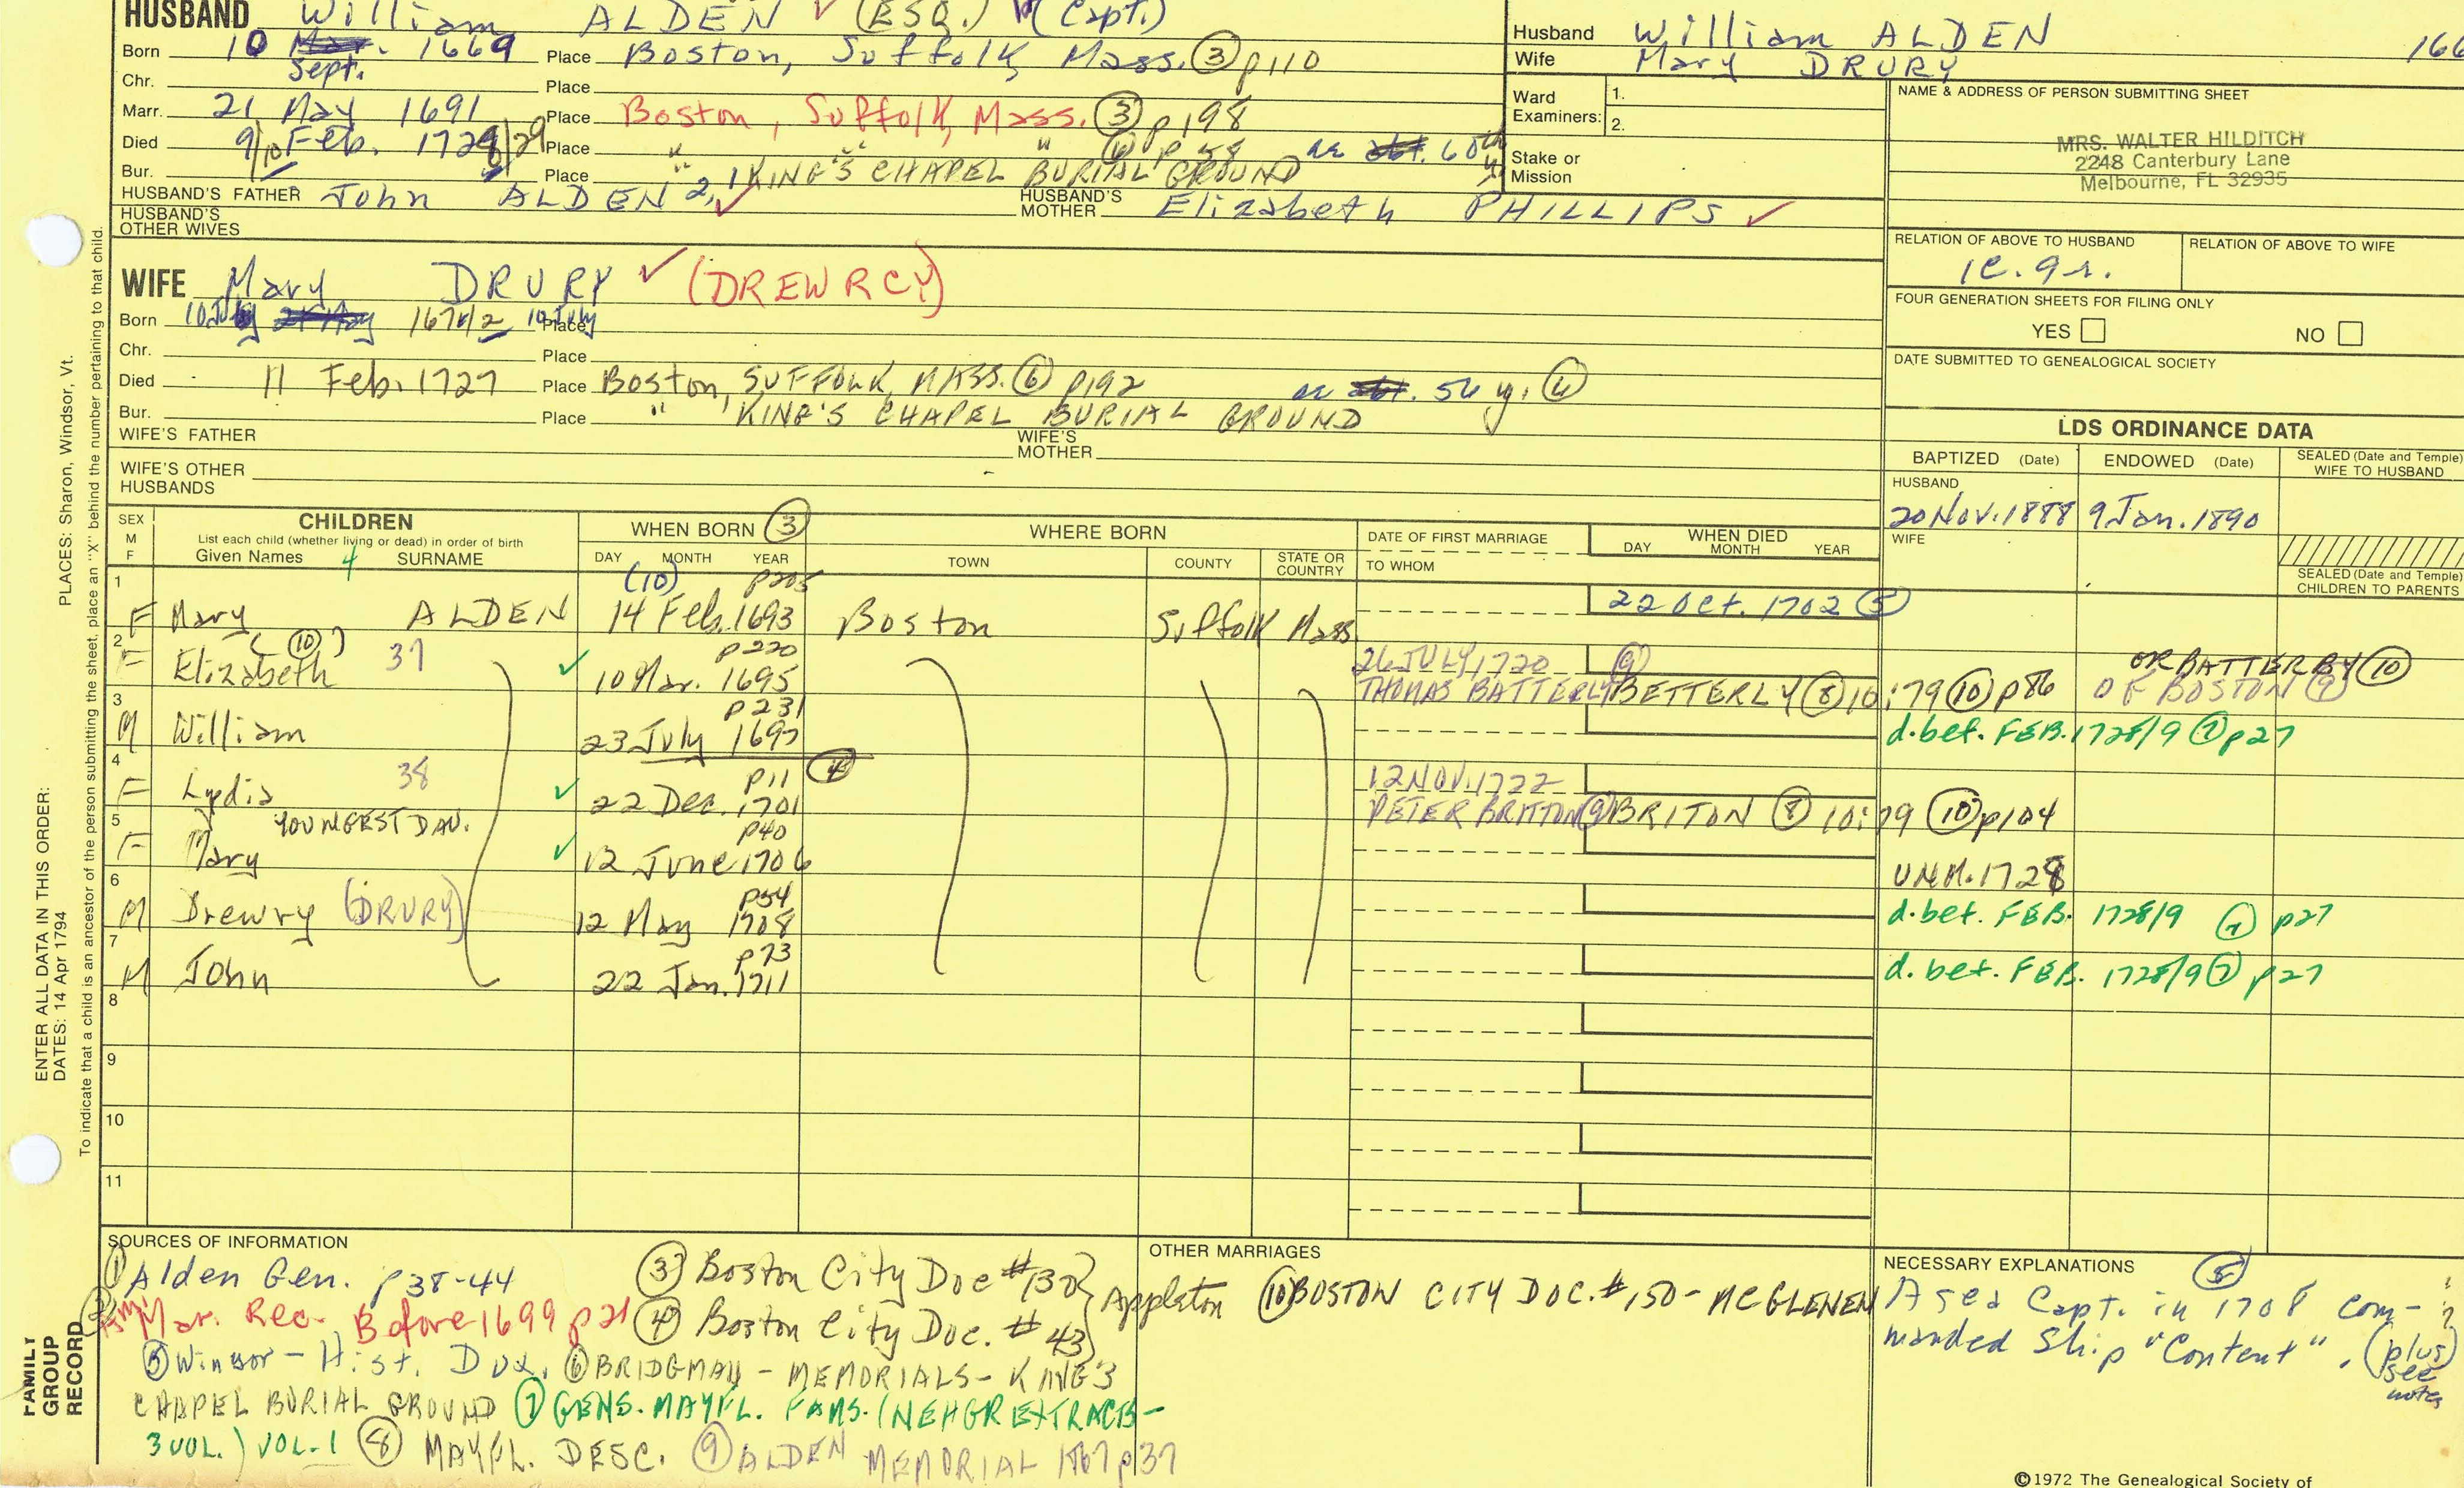 HUSBAND William ALDEN ✓ (ESQ.) (Capt.)
Born 10 Mar. 1669 Place Boston, Suffolk, Mass. ③ p110
Sept.
Chr. Place
Marr. 21 May 1691 Place Boston, Suffolk, Mass. ③ p198
Died 9/10 Feb. 1728/29 Place " " " ⑥ p 58 ae abt. 60th y
Bur. Place " KING'S CHAPEL BURIAL GROUND
HUSBAND'S FATHER John ALDEN 2, 1 ✓ HUSBAND'S MOTHER Elizabeth PHILLIPS ✓
HUSBAND'S OTHER WIVES
WIFE Mary DRURY ✓ (DREWRCY)
Born 10 July 1671/2 10 July Place
Chr. Place
Died 11 Feb. 1727 Place Boston, SUFFOLK, MASS. ⑥ p192 ae abt. 56 y. ⑥
Bur. Place " KING'S CHAPEL BURIAL GROUND
WIFE'S FATHER WIFE'S MOTHER
WIFE'S OTHER HUSBANDS
Husband William ALDEN 166
Wife Mary DRURY
Ward Examiners: 1.
2.
Stake or Mission
NAME & ADDRESS OF PERSON SUBMITTING SHEET
MRS. WALTER HILDITCH
2248 Canterbury Lane
Melbourne, FL 32935
RELATION OF ABOVE TO HUSBAND RELATION OF ABOVE TO WIFE
FOUR GENERATION SHEETS FOR FILING ONLY
YES NO
DATE SUBMITTED TO GENEALOGICAL SOCIETY
LDS ORDINANCE DATA
BAPTIZED (Date) ENDOWED (Date) SEALED (Date and Temple) WIFE TO HUSBAND
HUSBAND
20 Nov. 1888 9 Jan. 1890
WIFE
SEALED (Date and Temple) CHILDREN TO PARENTS
SEX M F CHILDREN WHEN BORN ③ WHERE BORN DATE OF FIRST MARRIAGE WHEN DIED
List each child (whether living or dead) in order of birth
Given Names 4 SURNAME DAY MONTH YEAR TOWN COUNTY STATE OR COUNTRY TO WHOM DAY MONTH YEAR
(10) p205
1 F Mary ALDEN 14 Feb. 1693 Boston Suffolk Mass. 22 Oct. 1702 ③
(⑩) p220 26 JULY, 1720 ⑨ OR BATTERBY ⑩
2 F Elizabeth 37 ✓ 10 Mar. 1695 THOMAS BATTERLY BETTERLY ⑧ 10:79 ⑩ p86 OF BOSTON ⑨
p231
3 M William 23 July 1697 d. bet. FEB. 1728/9 ⑦ p27
p11 ④ 12 NOV. 1722
4 F Lydia 38 ✓ 22 Dec. 1701 PETER BRITTON ⑨ BRITON ⑧ 10:79 ⑩ p104
YOUNGEST DAU. p40
5 F Mary ✓ 12 June 1706 UNM. 1728
p54
6 M Drewry (DRURY) 12 May 1708 d. bet. FEB. 1728/9 ⑦ p27
p73
7 M John 22 Jan. 1711 d. bet. FEB. 1728/9 ⑦ p27
8
9
10
11
SOURCES OF INFORMATION
① Alden Gen. p38-44
Mar. Rec. Before 1699 p21
③ Boston City Doc #130
④ Boston City Doc. # 43
Appleton
⑤ Winsor - Hist. Dux. ⑥ BRIDGMAN - MEMORIALS - KING'S
CHAPEL BURIAL GROUND ⑦ GENS. MAYFL. FAMS. (NEHGR EXTRACTS -
3 VOL.) VOL. 1 ⑧ MAYFL. DESC. ⑨ ALDEN MEMORIAL 1867 p37
OTHER MARRIAGES
⑩ BOSTON CITY DOC. #150 - MCGLENEN
NECESSARY EXPLANATIONS ⑤
A sea Capt. in 1708 com-
manded Ship "Content". (plus see notes
©1972 The Genealogical Society of
PLACES: Sharon, Windsor, Vt.
ENTER ALL DATA IN THIS ORDER:
DATES: 14 Apr 1794
To indicate that a child is an ancestor of the person submitting the sheet, place an "X" behind the number pertaining to that child.
FAMILY GROUP RECORD